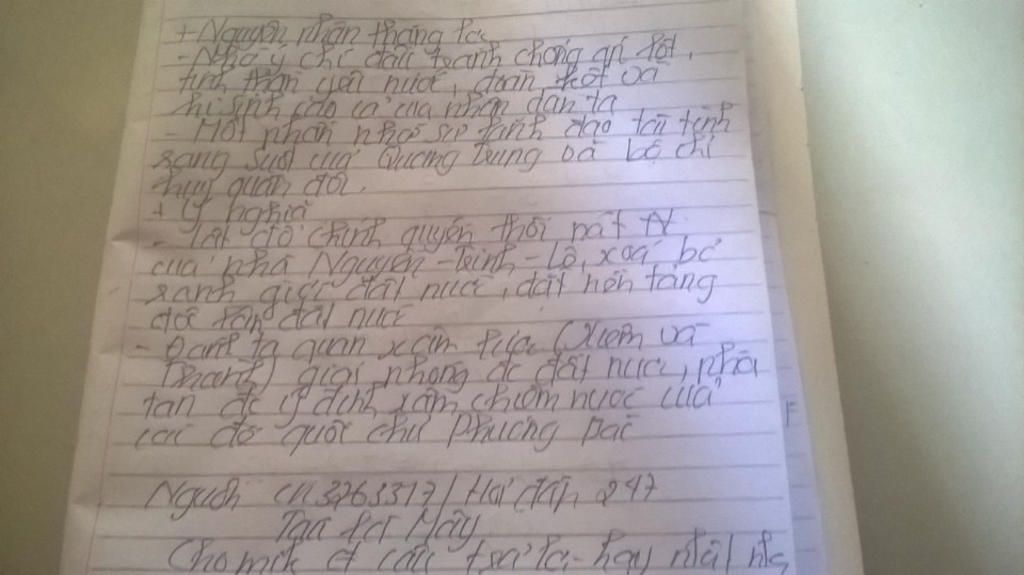 + Nguyên nhân thắng lợi
- Nhờ ý chí đấu tranh chống áp bức,
tinh thần yêu nước, đoàn kết và
hi sinh cao cả của nhân dân ta
- Một phần nhờ sự lãnh đạo tài tình
sáng suốt của Quang Trung và bộ chỉ
huy quân đội.
+ Ý nghĩa
- Lật đổ chính quyền thối nát
của nhà Nguyễn - Trịnh - Lê, xoá bỏ
ranh giới đất nước, đặt nền tảng
đất nước
- Đánh ta quân xâm lược (Xiêm và
Thanh) giải phóng đc đất nước, phá
tan đc ý định xâm chiếm nước của
các đế quốc chủ phương bắc
Nguồn cn3263317 / Hỏi đáp 247
Cho mik ct câu trả lời hay nhất